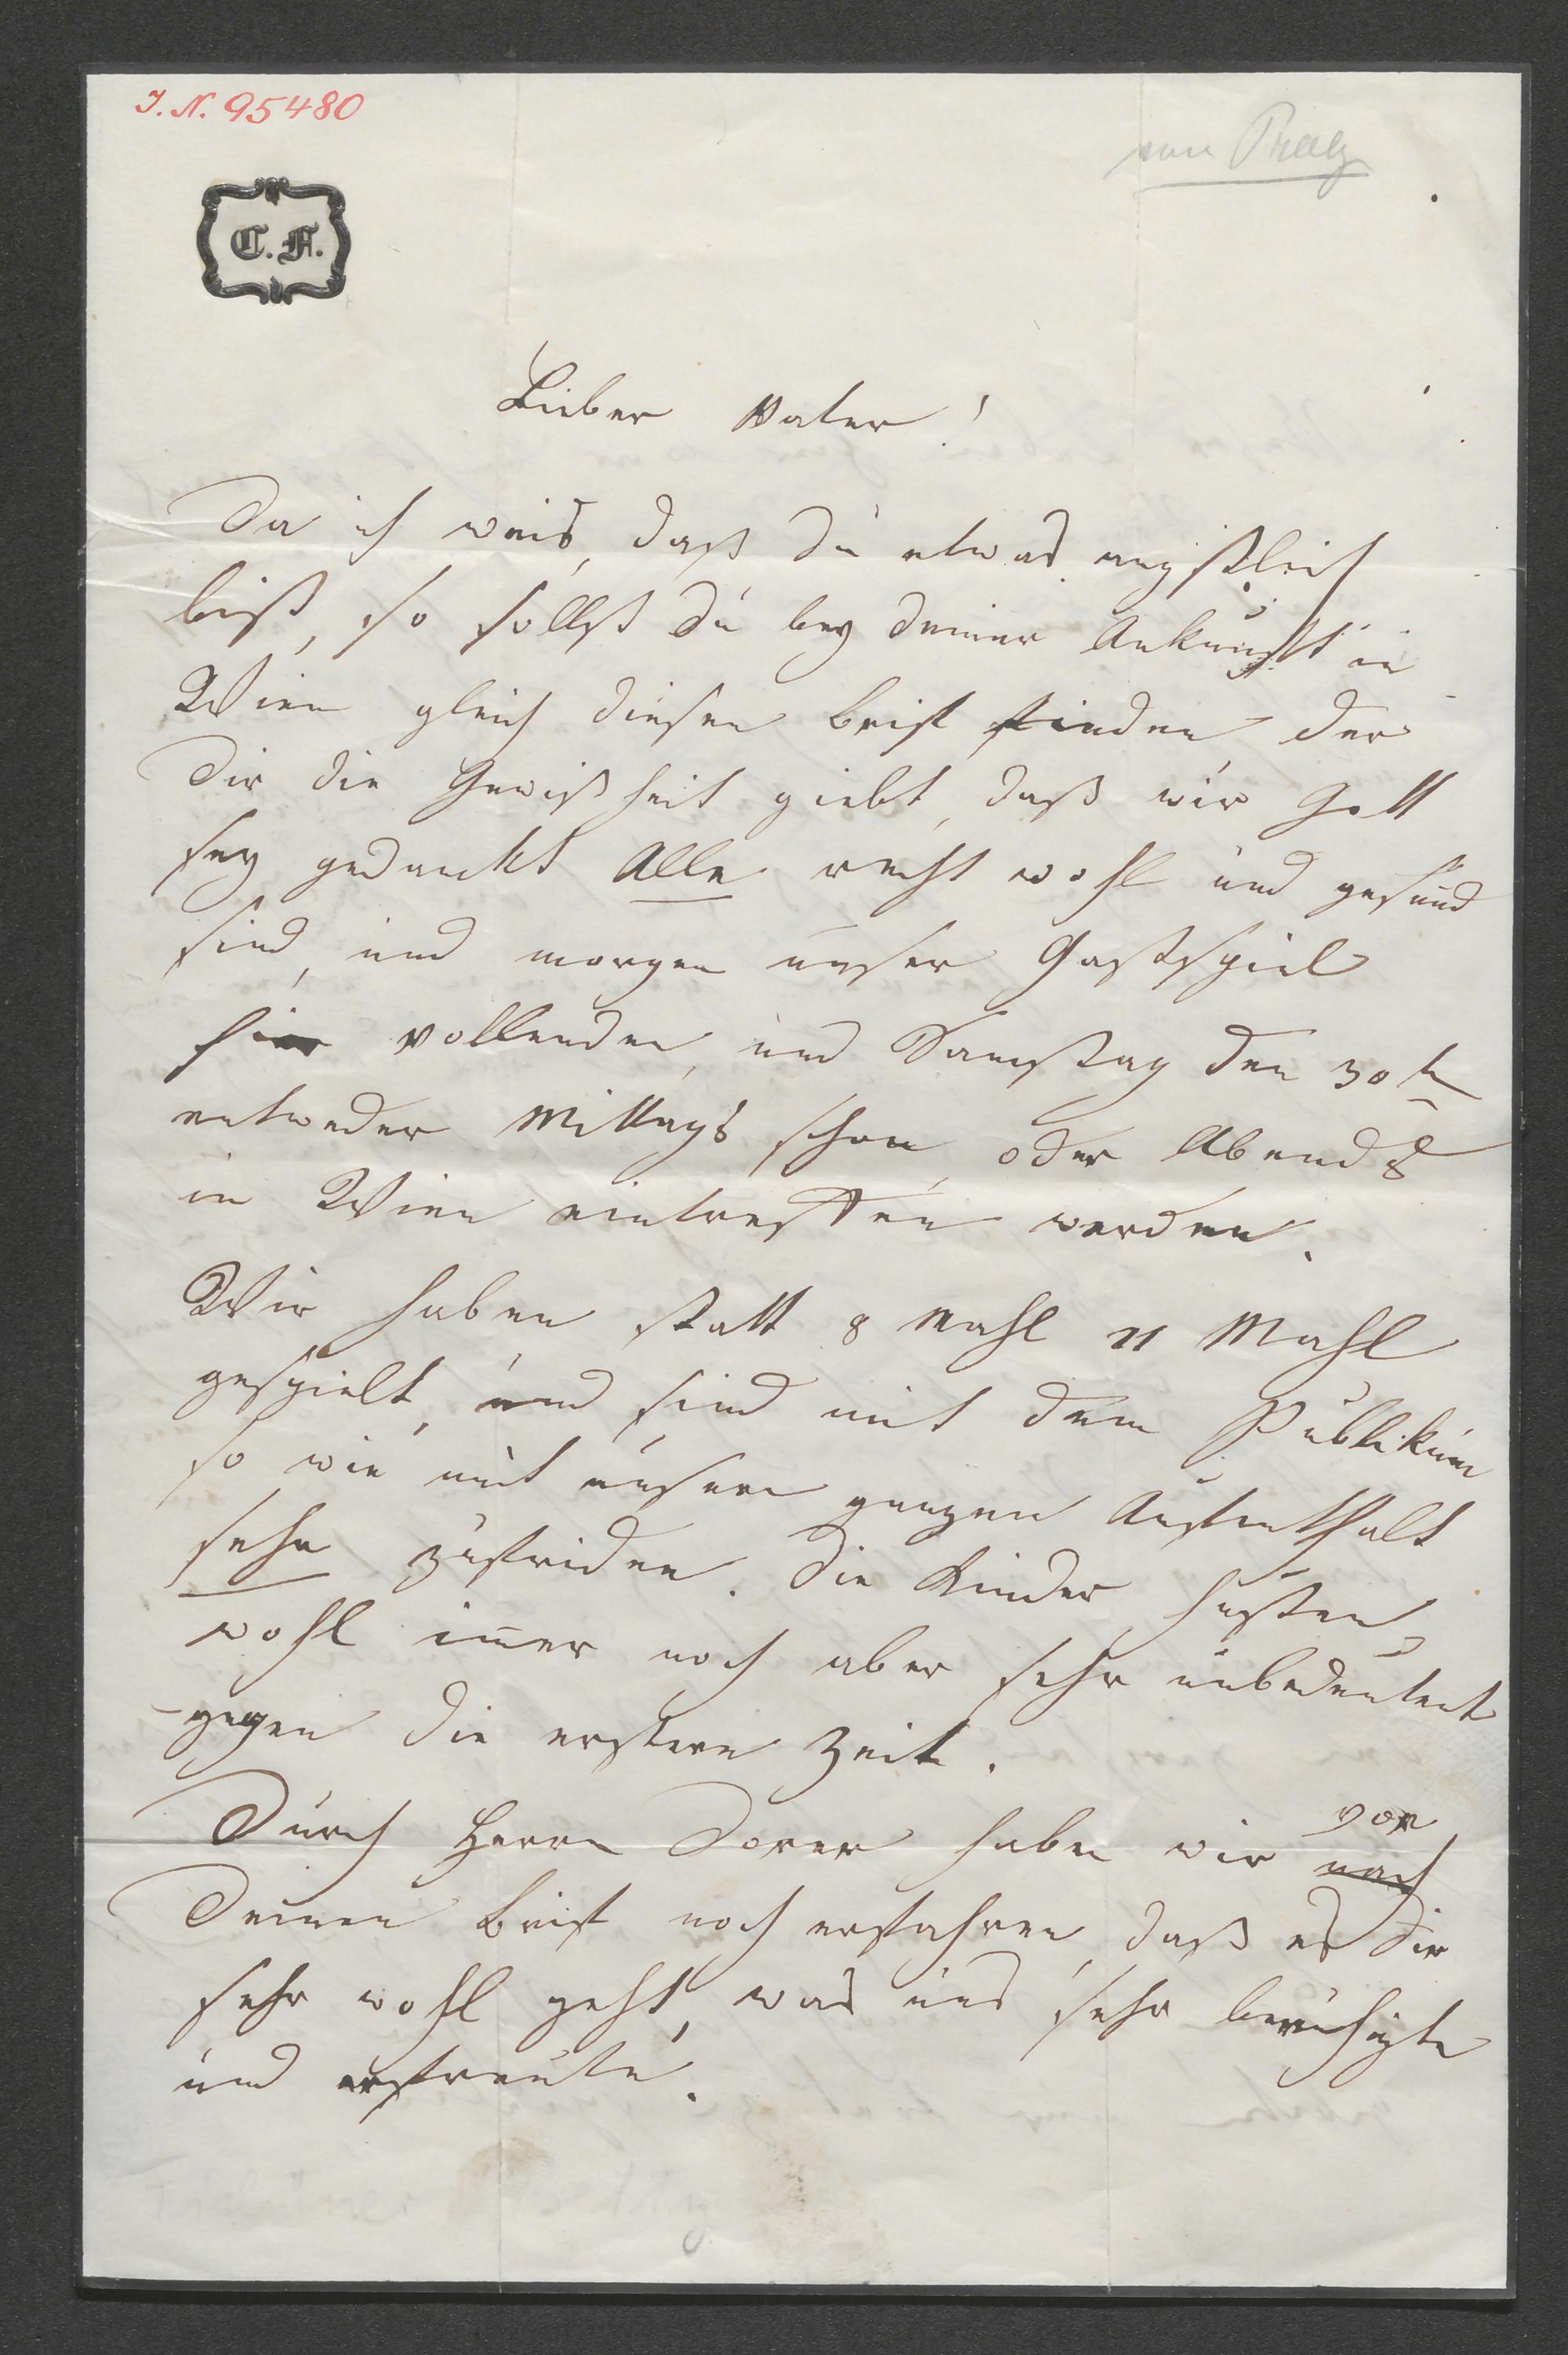 I. N. 95480
von Prag
C. F.
Lieber Vater!
Da ich weis, daß du etwas angstlich
bist, so sollst du bey deiner Ankunft in
Wien gleich diesen Brief finden der
dir die Gewißheit giebt, daß wir Gott
sey gedankt Alle recht wohl und gesund
sind, und morgen unser Gastspiel
hier vollenden, und Samstag den 30t
entweder Mittags schon, oder Abends
in Wien eintreffen werden.
Wir haben statt 8 Mahl 11 Mahl
gespielt, und sind mit dem Publikum
so wie mit unsern ganzen Aufenthalt
sehr zufriden. Die Kinder husten
wohl im̄er noch aber sehr unbedeutent
gegen die erstere Zeit.
von
Durch Herrn Dorer haben wir nach
Deinen Brief noch erfahren, daß es dir
sehr wohl geht, was uns sehr beruhigte
und erfreute.